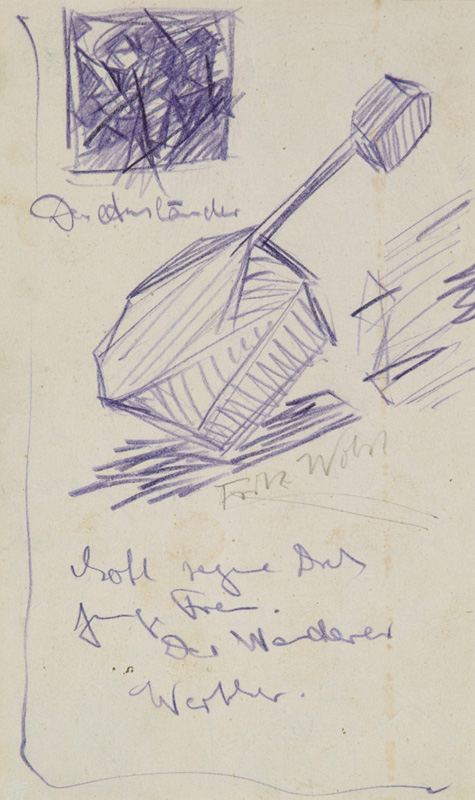 Der Ausländer
Fritz
Gott segne Dich
junge Frau.
Der Wanderer
Werther.